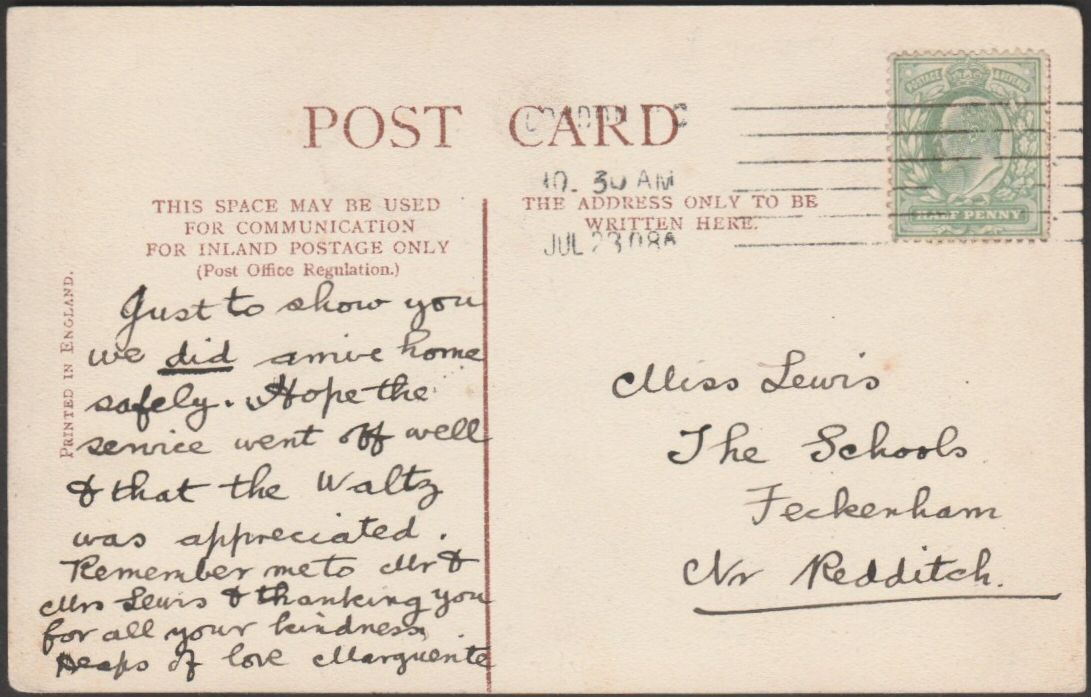 POST CARD
10. 30 AM
JUL 23 08
POSTAGE & REVENUE
HALF PENNY
THIS SPACE MAY BE USED
FOR COMMUNICATION
FOR INLAND POSTAGE ONLY
(Post Office Regulation.)
THE ADDRESS ONLY TO BE
WRITTEN HERE.
PRINTED IN ENGLAND.
Just to show you
we did arrive home
safely. Hope the
service went off well
& that the Waltz
was appreciated.
Remember me to Mr &
Mrs Lewis & thanking you
for all your kindness
Heaps of love Marguerite
Miss Lewis
The Schools
Feckenham
Nr Redditch.